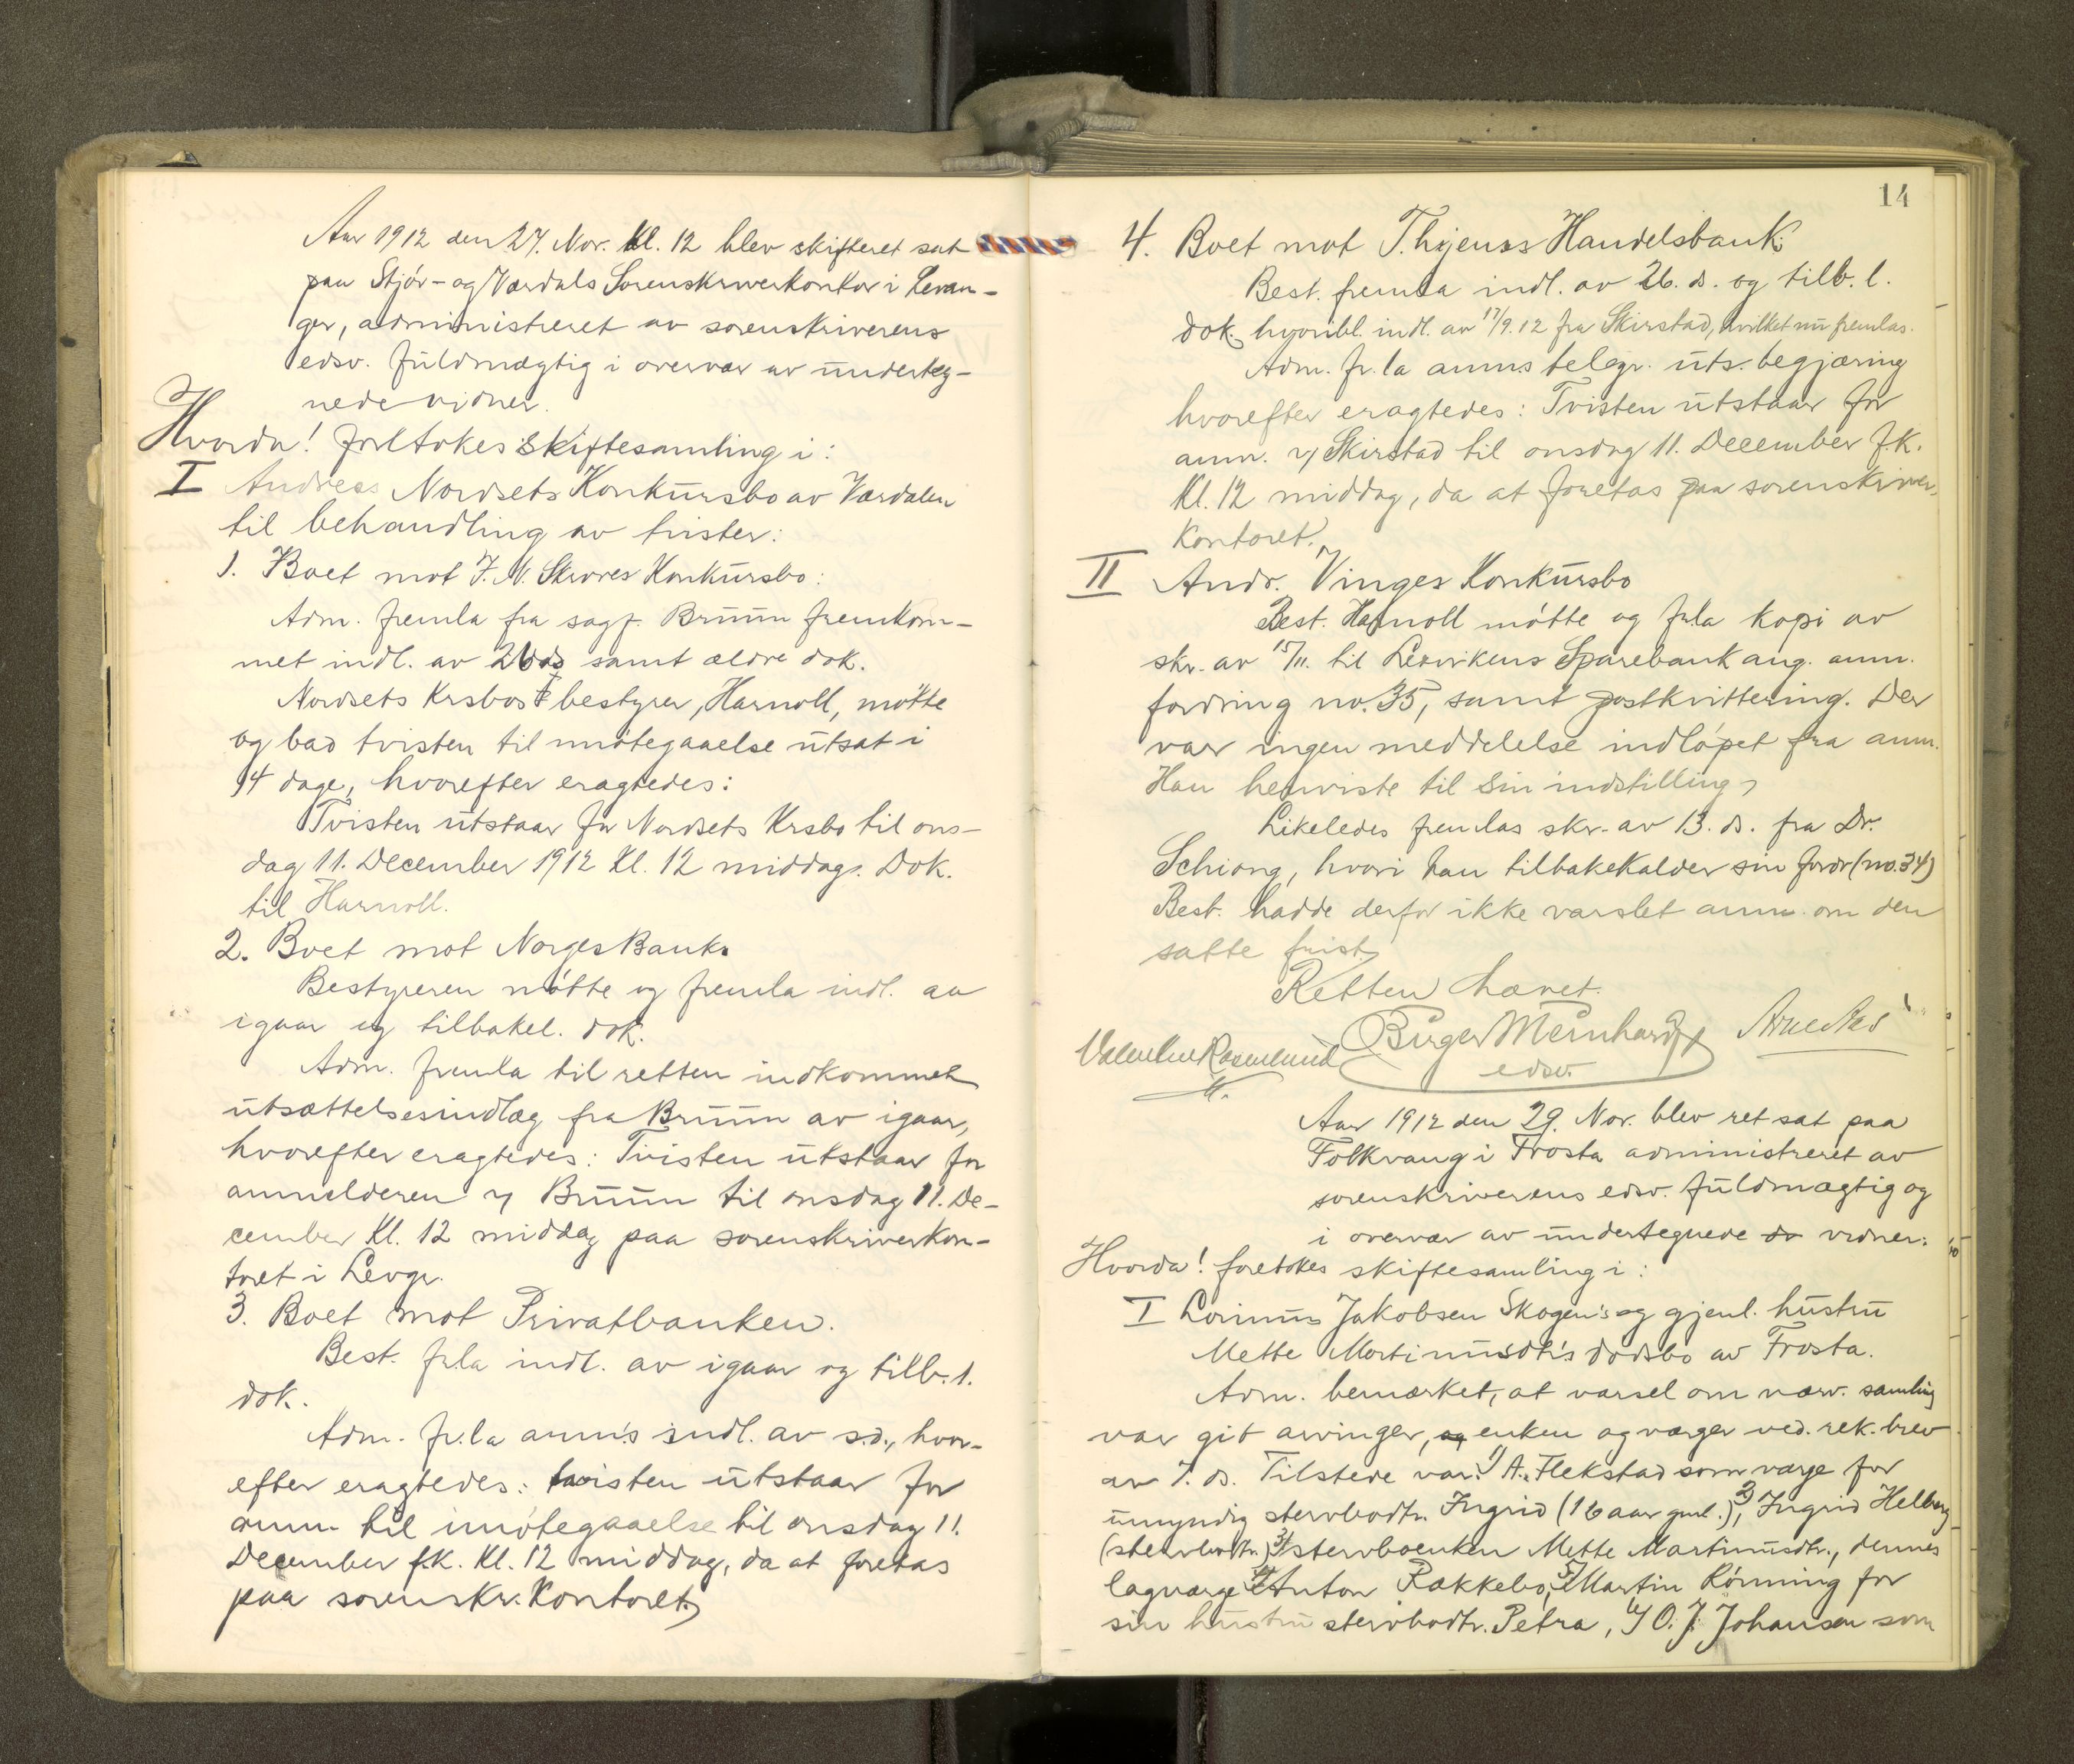 Aar 1912 den 27. Nov. kl. 12 blev skifteret sat
paa Stjór- og Værdals Sorenskriverkontor i Levan-
ger, administreret av sorenskriverens
edsv. fuldmægtig i overvær av underteg-
nede vidner.
Hvorda! foretokes skiftesamling i:
I Andreas Nordsets Konkursbo av Værdalen
til behandling av tvister:
1. Boet mot J. N. Skrove's Konkursbo:
Adm. fremla fra sagf. Bruun fremkom-
met indl. av 26 ds samt ældre dok.
Nordsets Krsbos bestyrer, Harnoll, møtte
og bad tvisten til imøtegaaelse utsat i
14 dage, hvorefter eragtedes:
Tvisten utstaar for Nordsets Krsbo til ons-
dag 11. December 1912 Kl. 12 middag. Dok.
til Harnoll.
2. Boet mot Norges Bank.
Bestyreren møtte og fremla indl. av
igaar og tilbakel. dok.
Adm. fremla til retten indkommet
utsættelsesindlæg fra Bruun av igaar,
hvorefter eragtedes: Tvisten utstaar for
anmelderen v/ Bruun til onsdag 11. De-
cember Kl. 12 middag paa sorenskriverkon-
toret i Levgr.
3. Boet mot Privatbanken.
Best. fr.la indl. av igaar og tilb. l.
dok.
Adm. fr.la anm's indl. av s.d., hvor-
efter eragtedes: tvisten utstaar for
anm. til imøtegaaelse til onsdag 11.
December f.k. Kl. 12 middag, da at foretas
paa sorenskr. Kontoret.
14
4. Boet mot Thjems Handelsbank.
Best. fremla indl. av 26. ds. og tilb. l.
dok. hvoribl. indl. av 17/9.12 fra Skirstad, hvilket nu fremlas.
Adm. fr.la anms telegr. uts. begjæring
hvorefter eragtedes: Tvisten utstaar for
anm. v/ Skirstad til onsdag 11. December f.k.
Kl. 12 middag, da at foretas paa sorenskriver-
Kontoret.
II Andr. Vinges Konkursbo
Best. Harnoll møtte og fr.la kopi av
skr. av 15/11. til Leksvikens Sparebank ang. anm.
fordring no. 35, samt postkvittering. Der
var ingen meddelelse indløpet fra anm.
Han henviste til sin indstilling.
Likeledes fremlas skr. av 13. ds. fra Dr.
Schiong, hvori han tilbakekalder sin fordr (no. 34)
Best. hadde derfor ikke varslet anm. om den
satte frist.
Retten hævet.
Valentin Rosenlund Birger Meinhardt Arne Aas
edsv.
Aar 1912 den 29. Nov. blev ret sat paa
Folkvang i Frosta administreret av
sorenskriverens edsv. fuldmægtig og
i overvær av undertegnede vidner.
Hvorda! foretokes skiftesamling i:
I Lorinus Jakobsen Skogen's og gjenl. hustru
Mette Martinusdtr's dødsbo av Frosta.
Adm. bemærket, at varsel om nærv. samling
var git arvinger, enken og værger ved. rek. brev
av 7. ds. Tilstede var: 1) A. Flekstad som værge for
umyndig stervbodtr. Ingrid (16 aar gml.), 2) Ingrid Helberg
(stervbodtr.) 3) stervboenken Mette Martinusdtr., dennes
lagværge 4) Anton Rækkebo, 5) Martin Rønning for
sin hustru stervbodtr. Petra, 6) O. J. Johansen som